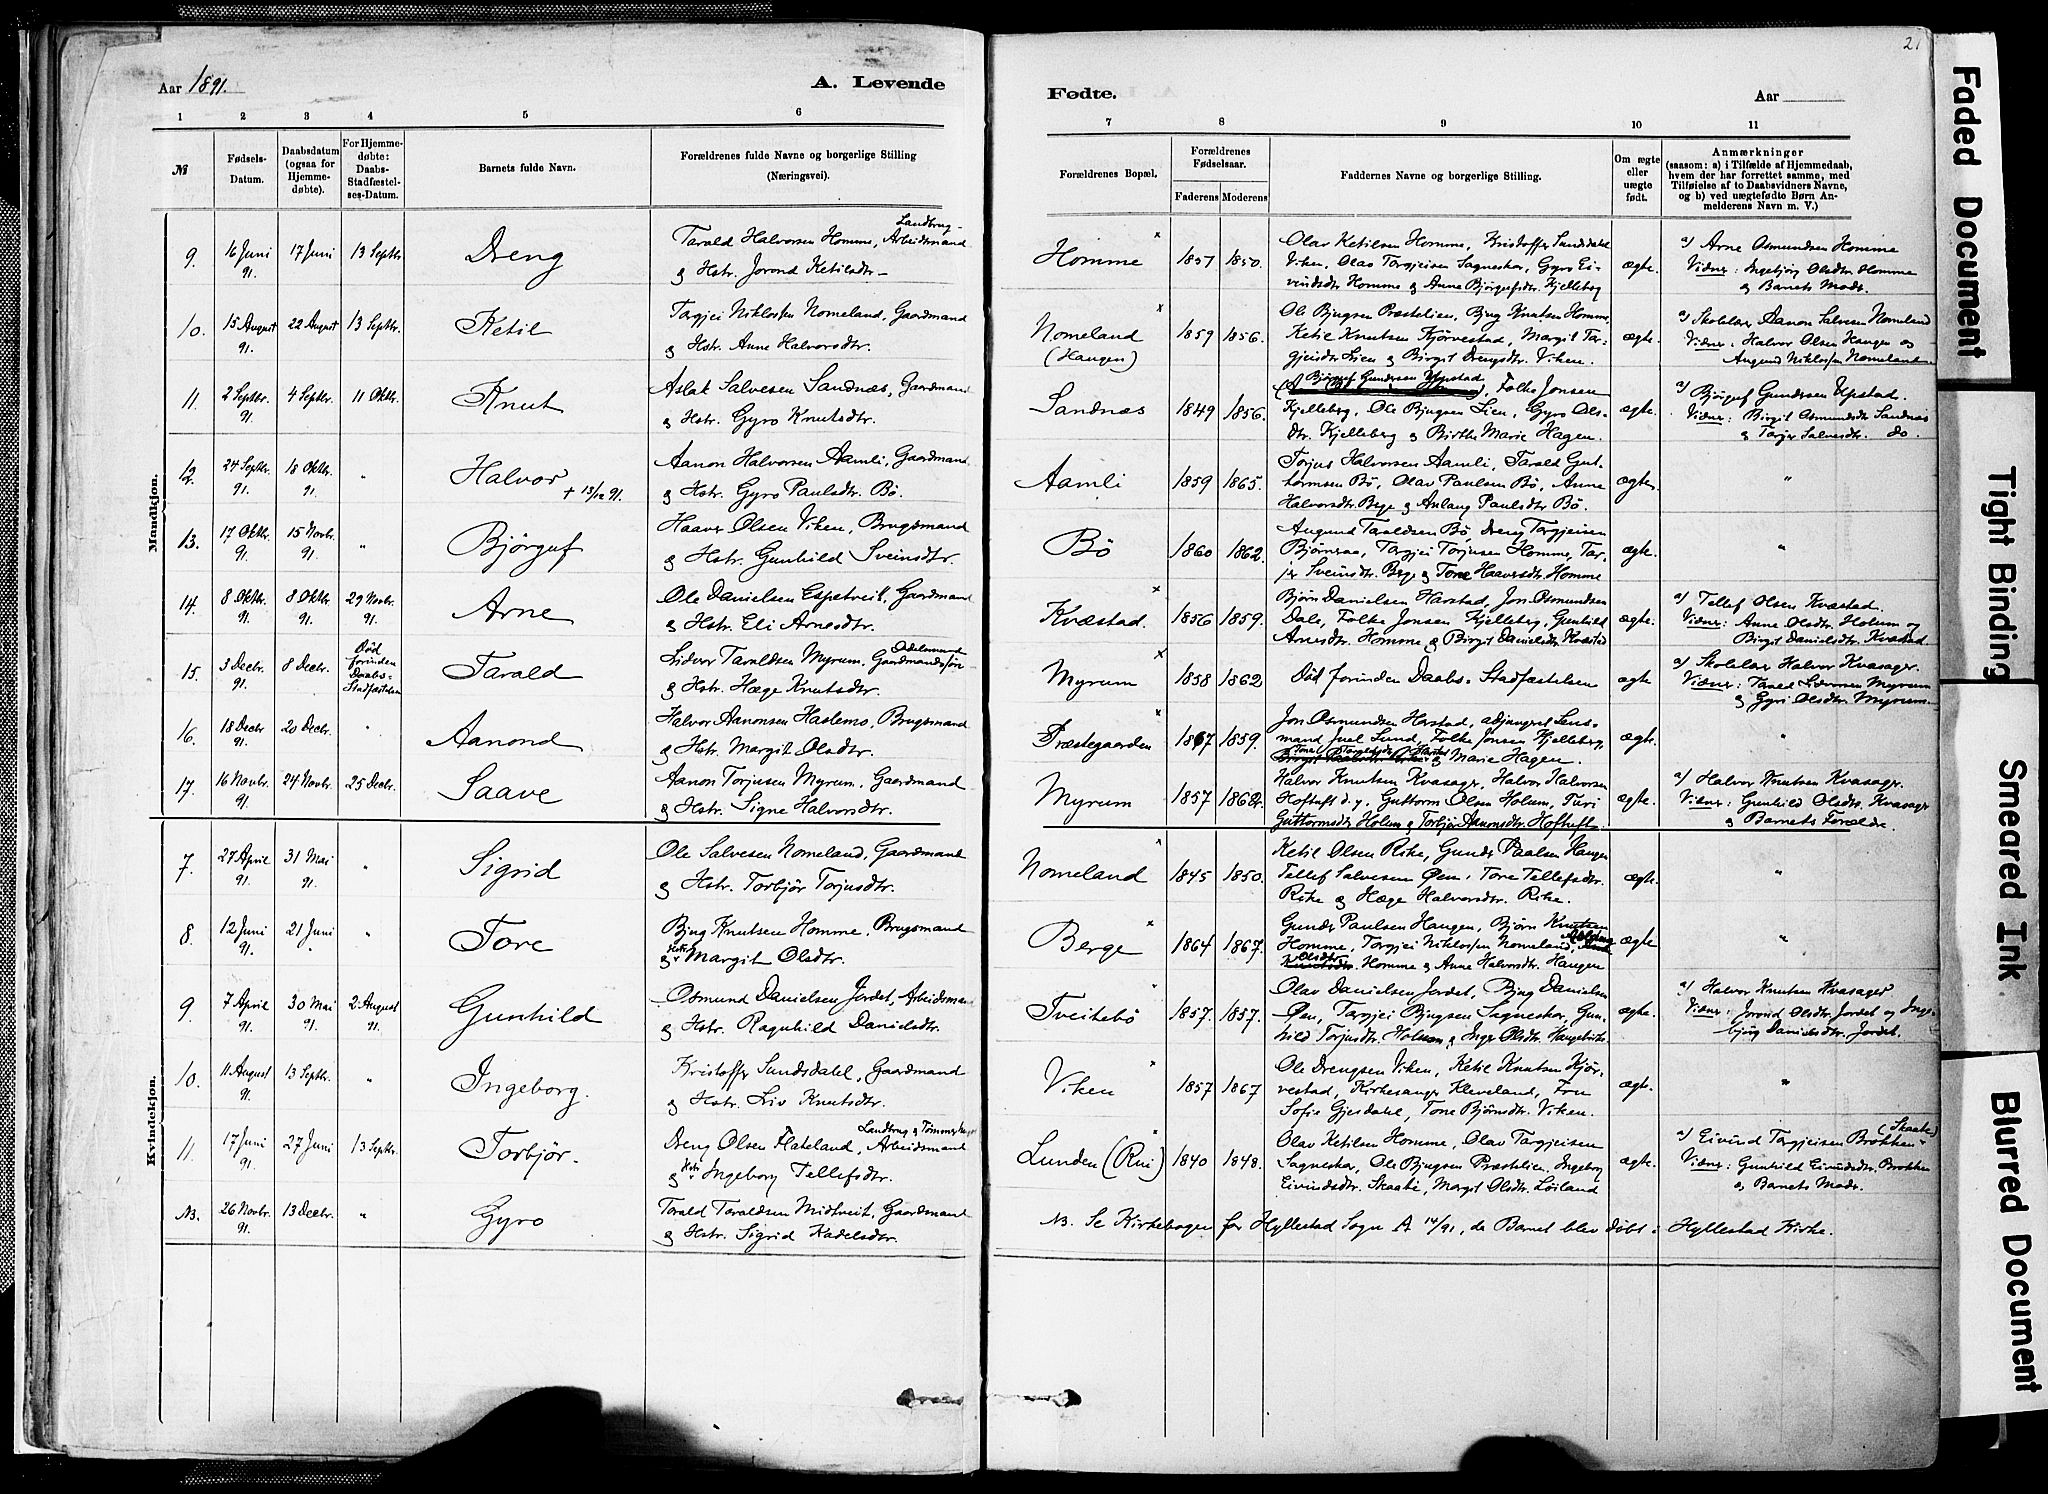 Aar 1891.
A. Levende
1 2 3 4 5 6
№
Fødsels-Datum.
Daabsdatum (ogsaa for Hjemme-døbte).
For Hjemme-døbte: Daabs-Stadfæstel-ses-Datum.
Barnets fulde Navn.
Forældrenes fulde Navne og borgerlige Stilling (Næringsvei).
Mandkjøn.
9. 16 Juni 91. 17 Juni 13 Septbr. Dreng
Landbrug-
Tarald Halvorsen Homme, Arbeidsmand
& Hstr. Jorond Ketilsdtr.
10. 15 August 91. 22 August 13 Septbr. Ketil
Torgjei Niklossen Nomeland, Gaardmand
& Hstr. Anne Halvorsdtr.
11. 2 Septbr. 91. 4 Septbr. 11 Oktbr. Knut
Aslak Salvesen Sandnæs, Gaardmand
& Hstr. Gyro Knutsdtr.
12. 24 Septbr. 91. 18 Oktbr. 91. " Halvor + 13/12 91.
Aanon Halvorsen Aamli, Gaardmand
& Hstr. Gyro Paulsdtr. Bø.
13. 17 Oktbr. 91. 15 Novbr. 91. " Bjørguf
Haavor Olsen Viken, Brugsmand
& Hstr. Gunhild Sveinsdtr.
14. 8 Oktbr. 91. 8 Oktbr. 91. 29 Novbr. 91. Arne
Ole Danielsen Espetveit, Gaardmand
& Hstr. Eli Arnesdtr.
15. 3 Decbr. 91. 8 Decbr. Død forinden Daabs-Stadfæstelsen Tarald
Lidvor Taraldsen Myrum, Gaardmandssøn
& Hstr. Hæge Knutsdtr.
16. 18 Decbr. 91. 20 Decbr. " Aanond
Halvor Aanonsen Haslemo, Brugsmand
& Hstr. Margit Olsdtr.
17. 16 Novbr. 91. 24 Novbr. 25 Decbr. Saave
Aanon Torjusen Myrum, Gaardmand
& Hstr. Signe Halvorsdtr.
Kvindekjøn.
7. 27 April 91. 31 Mai 91. " Sigrid
Ole Salvesen Nomeland, Gaardmand
& Hstr. Torbjør Torjusdtr.
8. 12 Juni 91. 21 Juni " Tore
Bjug Knutsen Homme, Brugsmand
& Hstr. Margit Olsdtr.
9. 7 April 91. 30 Mai 91. 2 August 91. Gunhild
Osmund Danielsen Jordet, Arbeidsman
& Hstr. Ragnhild Danielsdtr.
10. 11 August 91. 13 Septbr. " Ingeborg.
Kristoffer Sundsdahl, Gaardmand
& Hstr. Liv Knutsdtr.
11. 17 Juni 91. 27 Juni 13 Septbr. Torbjør.
Dreng Olsen Flateland, Arbeidsmand
& Hstr. Ingeborg Tellefsdtr.
NB. 26 Novbr. 91. 13 Decbr. " Gyro
Tarald Taraldsen Midtveit, Gaardmand
& Hstr. Sigrid Kadelsdtr.
21
Fødte.
Aar
7 8 9 10 11
Forældrenes Bopæl.
Forældrenes Fødselsaar.
Faderens Moderens
Faddernes Navne og borgerlige Stilling.
Om ægte eller uægte født.
Anmærkninger
(saasom: a) i Tilfælde af Hjemmedaab,
hvem der har forrettet samme, med
Tilføielse af to Daabsvidners Navne,
og b) ved uægtefødte Børn An-
melderens Navn m. V.)
Homme 1857 1850.
Olav Ketilsen Homme, Kristoffer Sundsdahl
Viken, Olav Torgjeisen Sagneskar, Gyro Ei-
vindsdtr Homme & Anne Bjørgufsdtr. Kjelleberg
ægte.
a) Arne Osmundsen Homme
Vidner: Ingebjørg Olsdtr. Homme
& Barnets Moder.
Nomeland (Haugen) 1859 1856.
Ole Bjugsen Præstelien, Bjug Knutsen Homme,
Ketil Knutsen Kjørvestad, Margit Tar-
gjeisdtr. Lien & Birgit Drengsdtr. Viken.
ægte.
a) Skolelærer Aanon Salvesen Nomeland
Vidner: Halvor Olsen Haugen og
Augund Niklossen Nomeland
Sandnæs 1849 1856.
Bjørguf Gundersen Upstad, Folke Jonsen
Kjelleberg, Ole Bjugsen Lien, Gyro Ols-
dtr. Kjelleberg & Birthe Marie Hagen.
ægte.
a) Bjørguf Gundersen Upstad.
Vidner: Birgit Osmundsdtr Sandnæs
& Torjer Salvesdtr. do.
Aamli 1859 1865.
Torjus Halvorsen Aamli, Tarald Gut-
tormsen Bø, Olav Paulsen Bø, Anne
Halvorsdtr. Berge & Aslaug Paulsdtr Bø.
ægte.
"
Bø 1860 1862.
Augund Taraldsen Bø, Dreng Torgjeisen
Bjørnsaa, Torgjei Torjusen Homme, Tor-
jer Sveinsdtr. Berge & Tone Haavorsdtr. Homme
ægte.
"
Kvæstad. 1856 1859.
Bjørn Danielsen Harstad, Jon Osmundsen
Dale, Folke Jonsen Kjelleberg, Gunhild
Arnesdtr. Homme & Birgit Danielsdtr. Kvæstad
ægte.
a) Tellef Olsen Kvæstad.
Vidner: Anne Olsdtr. Holum &
Birgit Danielsdtr. Kvæstad.
Myrum 1858 1862
Død forinden Daabs-Stadfæstelsen
ægte
a) Skolelærer Halvor Kvasager.
Vidner: Tarald Myrum
& Gyri Olsdtr. Myrum
Præstegaarden 1867 1859.
Jon Osmundsen Harstad, adjungert Lens-
mand Juel Lund, Folke Jonsen Kjelleberg,
& Marie Hagen.
ægte.
"
Myrum 1857 1862.
Halvor Knutsen Kvasager, Halvor Halvorsen
Hoftuft d.y., Guttorm Olsen Holum, Turi
Guttormsdtr. Holum & Torbjør Aanonsdtr. Hoftuft.
ægte.
a) Halvor Knutsen Kvasager
Vidner: Gunhild Olsdtr. Kvasager
& Barnets Forældre.
Nomeland 1845 1850.
Ketil Olsen Rike, Gunder Paalsen Haugen
Tellef Salvesen Øen, Tore Tellefsdtr.
Rike & Hæge Halvorsdtr. Rike.
ægte.
"
Berge 1864 1867.
Gunder Paulsen Haugen, Bjørn Knutsen
Homme, Torgjei Niklossen Nomeland,
Olsdtr. Homme & Anne Halvorsdtr. Haugen
ægte
"
Tveitebø 1857. 1857.
Olav Danielsen Jordet, Bjug Danielsen
Øen, Torgjei Bjugsen Sagneskar, Gun-
hild Torjusdtr. Holum & Inger Olsdtr.
ægte.
a) Halvor Knutsen Kvasager
Vidner: Jorond Olsdtr. Jordet og Inge-
bjørg Danielsdtr. Jordet.
Viken 1857 1867
Ole Drengsen Viken, Ketil Knutsen Kjør-
vestad, Kirkesanger Kleveland, Fru
Sofie Gjesdahl, Tone Bjørnsdtr. Viken.
ægte.
"
Lunden (Rui) 1840 1848.
Olav Ketilsen Homme, Olav Torgjeisen
Sagneskar, Ole Bjugsen Præstelien, Ingeborg
Eivindsdtr. Skaate, Margit Olsdtr. Løiland
ægte.
(Skaate)
a) Eivind Torgjeisen Brokken
Vidner: Gunhild Eivindsdtr. Brokken
& Barnets Moder.
NB. Se Kirkebogen for Hyllestad Sogn A 14/91, da Barnet blev døbt i Hyllestad Kirke.
Faded Document
Tight Binding
Smeared Ink
Blurred Document